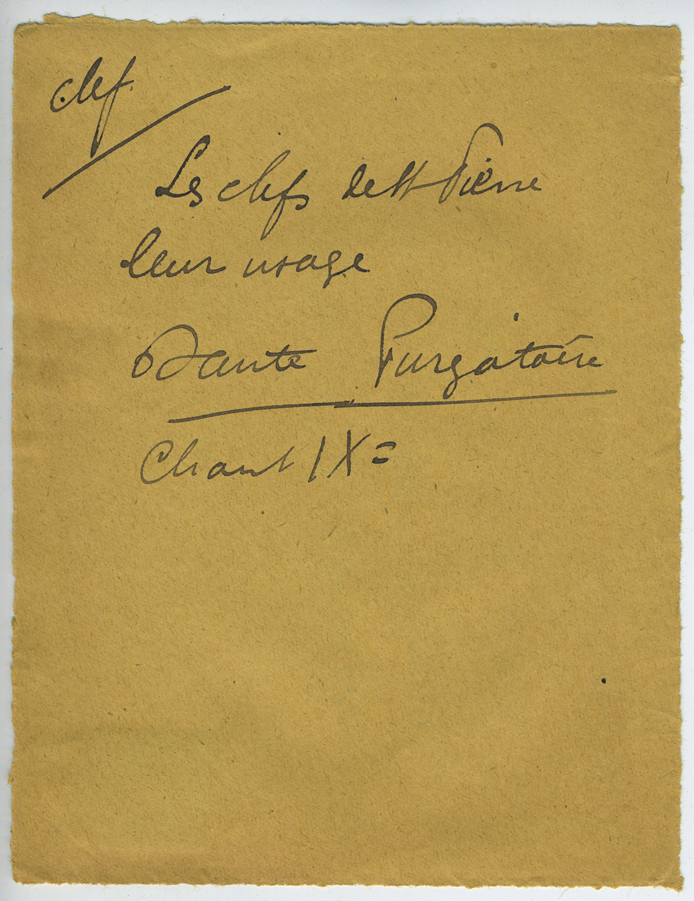 clef
Les clefs de St Pierre
leur usage
Dante Purgatoire
Chant IX=